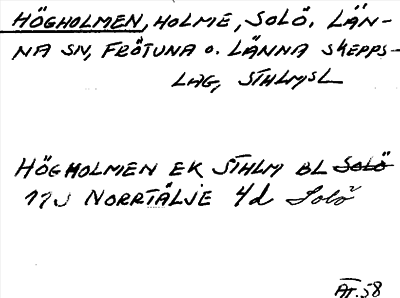 HÖGHOLMEN, HOLME, SOLÖ, LÄN-
NA SN, FRÖTUNA o. LÄNNA SKEPPS-
LAG, STHLMSL
HÖGHOLMEN EK STHLM BL SOLÖ
11J NORRTÄLJE 4d Solö
AT.58